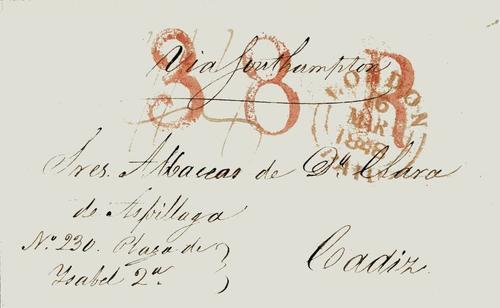 Via Southampton
38 R
LONDON
16
MAR
1848
PAID
Sres. Albaceas de Dª Clara
de Aspillaga
Nº 230. Plaza de
Ysabel 2ª
Cadiz